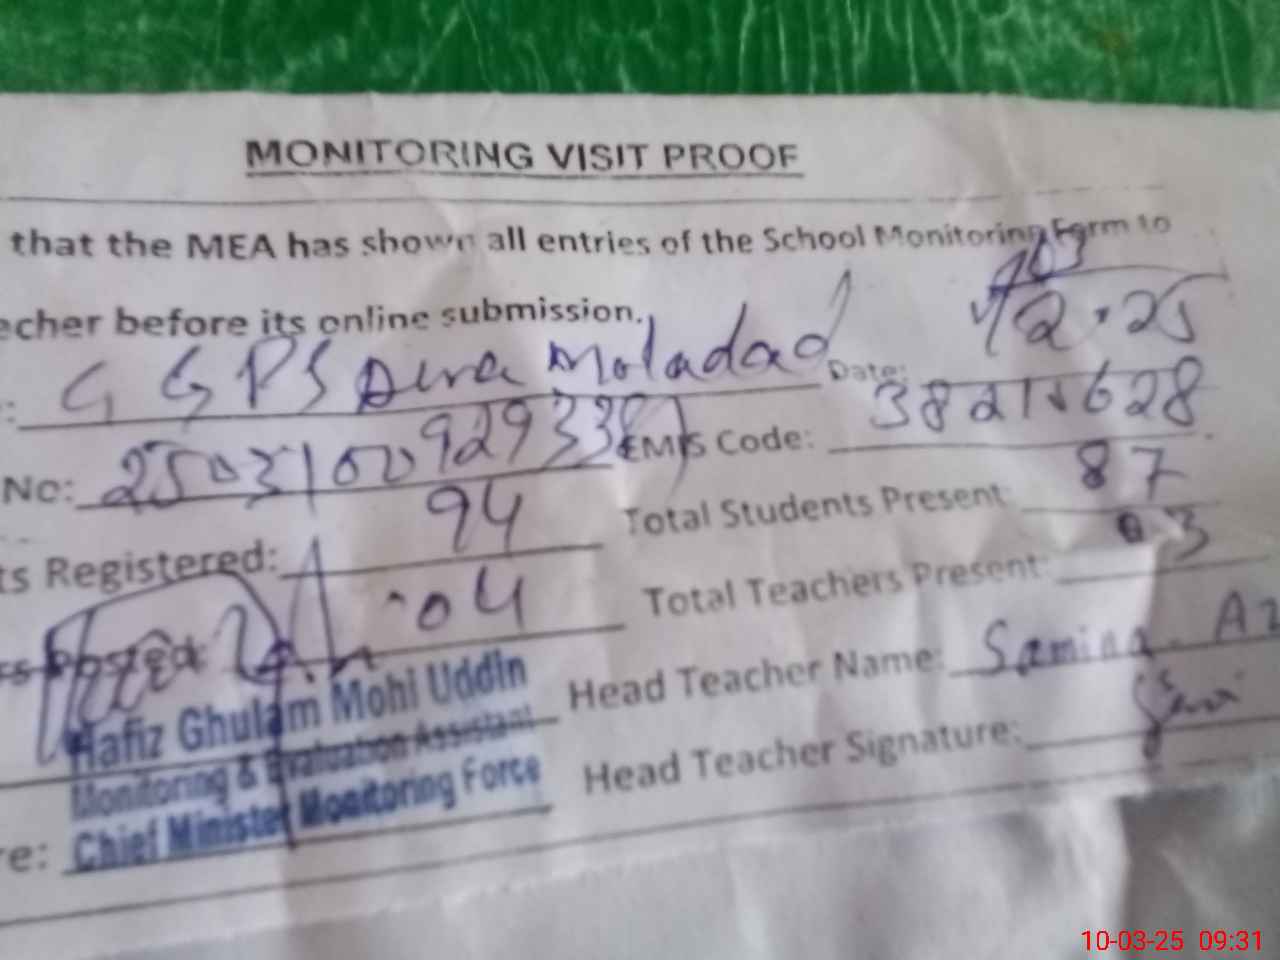 MONITORING VISIT PROOF
that the MEA has shown all entries of the School Monitoring Form to
echer before its online submission.
: G G P S Dera Moladad Date: 2.25
No: EMIS Code:
ts Registered: 94 Total Students Present: 87
04 Total Teachers Present: 03
Head Teacher Name: Samina Az
Hafiz Ghulam Mohi Uddin
Monitoring & Evaluation Assistant
Head Teacher Signature:
Chief Minister Monitoring Force
re:
10-03-25 09:31